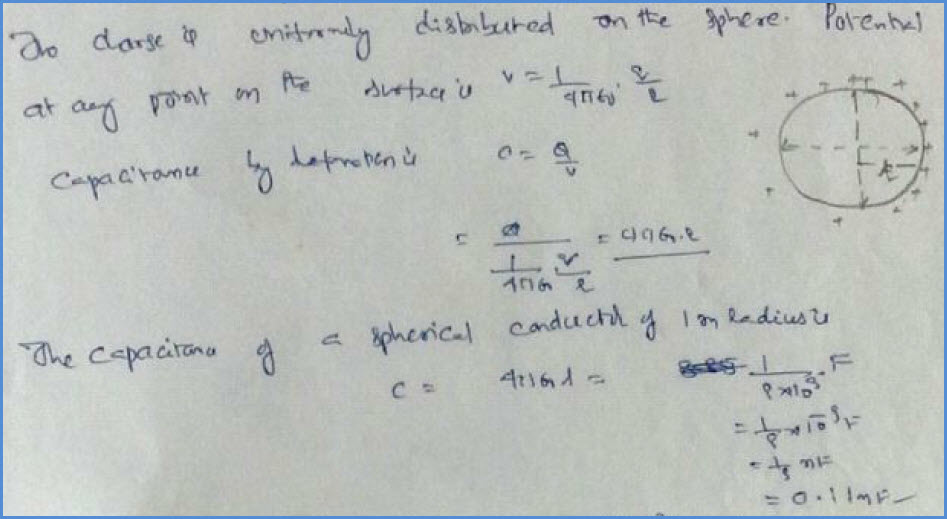 The charge is uniformly distributed on the sphere. Potential
at any point on the surface is V = 1/4πε₀ . q/r
Capacitance by definition is C = Q/V
= Q / (1/4πε₀ q/r) = 4πε₀.r
R
The capacitance of a spherical conductor of 1m radius is
C = 4πε₀1 = 1/9×10⁹ . F
= 1/9 × 10⁻⁹ F
= 1/9 nF
= 0.11nF